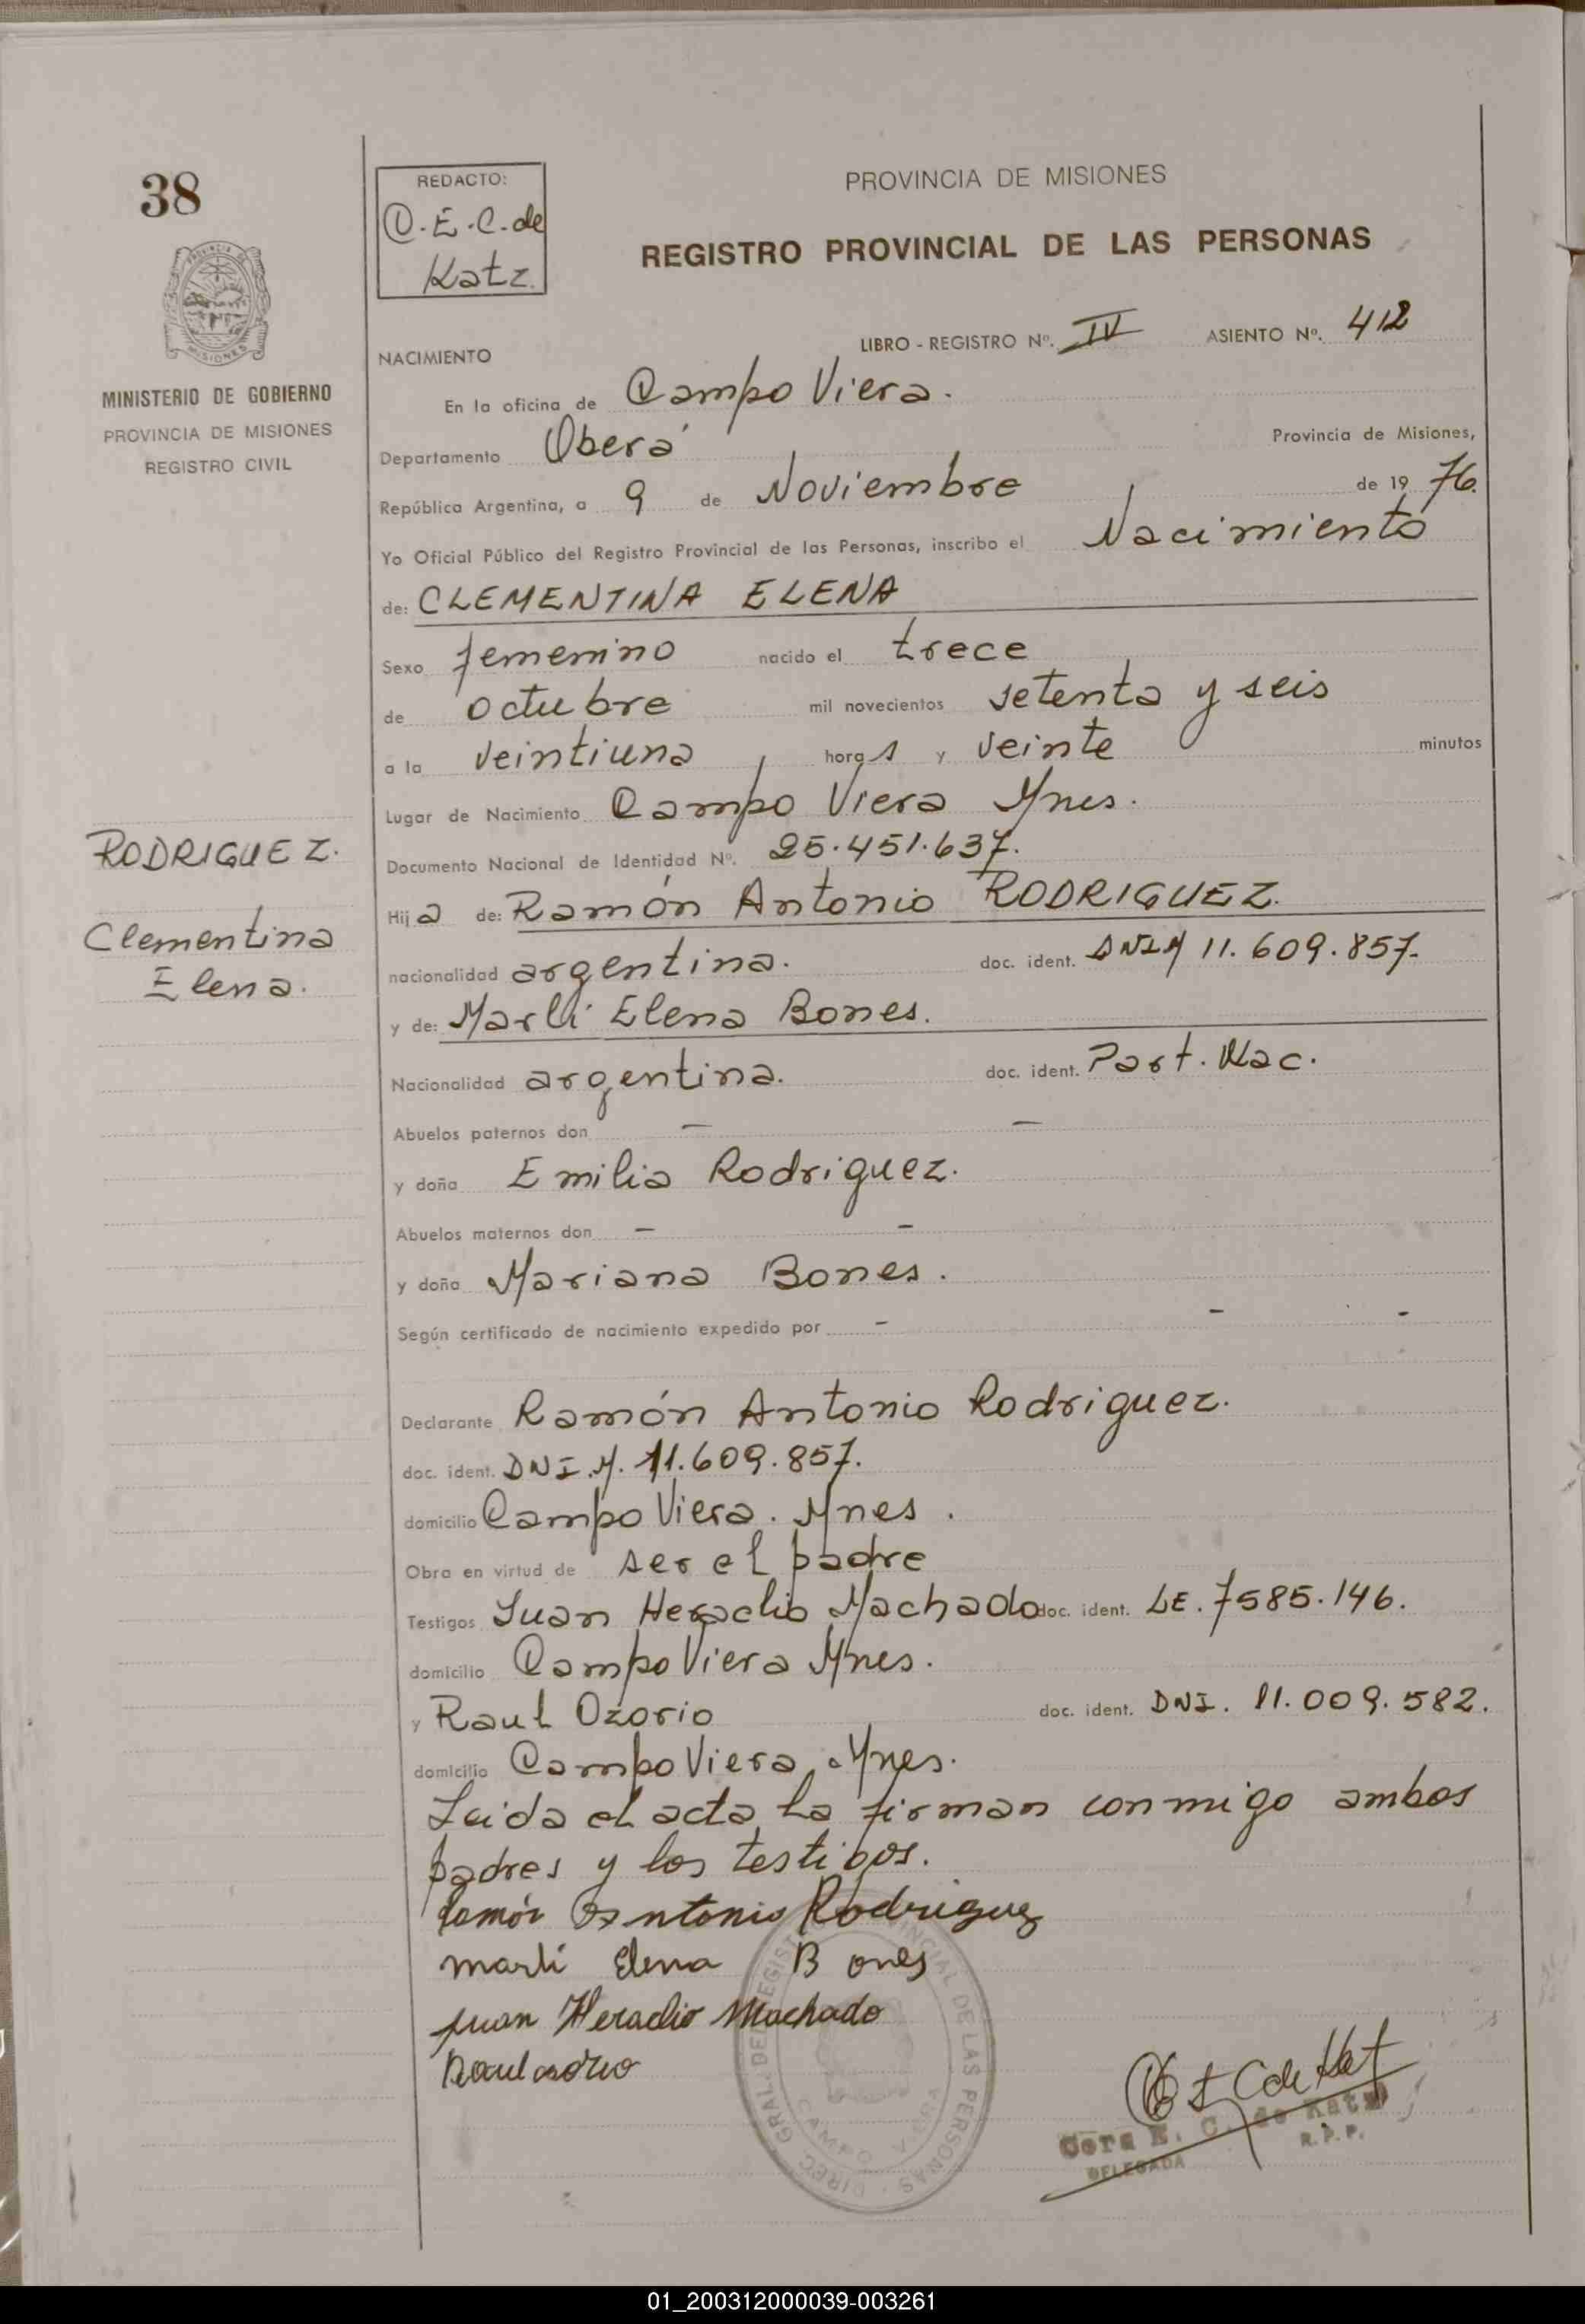 38
REDACTO:
C.E.C.de
Katz.
PROVINCIA DE MISIONES
REGISTRO PROVINCIAL DE LAS PERSONAS
PROVINCIA DE
MISIONES
MINISTERIO DE GOBIERNO
PROVINCIA DE MISIONES
REGISTRO CIVIL
LIBRO - REGISTRO Nº. IV ASIENTO Nº. 412
NACIMIENTO
En la oficina de Campo Viera.
Departamento Oberá Provincia de Misiones,
República Argentina, a 9 de Noviembre de 19 76.
Yo Oficial Público del Registro Provincial de las Personas, inscribo el Nacimiento
de: CLEMENTINA ELENA
Sexo femenino nacido el trece
de octubre mil novecientos setenta y seis
a la veintiuna horas y veinte minutos
Lugar de Nacimiento Campo Viera Mnes.
RODRIGUEZ.
Clementina
Elena.
Documento Nacional de Identidad Nº. 25.451.637.
Hija de: Ramón Antonio RODRIGUEZ.
nacionalidad argentina. doc. ident. DNIM 11.609.857.
y de: Marli Elena Bones.
Nacionalidad argentina. doc. ident. Part. Nac.
Abuelos paternos don — —
y doña Emilia Rodriguez.
Abuelos maternos don — —
y doña Mariana Bones.
Según certificado de nacimiento expedido por - - -
Declarante Ramón Antonio Rodriguez.
doc. ident. DNI.M. 11.609.857.
domicilio Campo Viera. Mnes.
Obra en virtud de ser el padre
Testigos Juan Heraclio Machado doc. ident. LE. 7585.146.
domicilio Campo Viera Mnes.
y Raul Ozorio doc. ident. DNI. 11.009.582.
domicilio Campo Viera, Mnes.
Leida el acta la firman conmigo ambos
padres y los testigos.
Ramón Antonio Rodriguez
marli Elena Bones
Juan Heraclio Machado
Raul
DIREC. GRAL. DEL REGISTRO PROVINCIAL DE LAS PERSONAS
CAMPO VIERA
C de Kat
Cora E. C. de Katz
DELEGADA R.P.P.
01_200312000039-003261